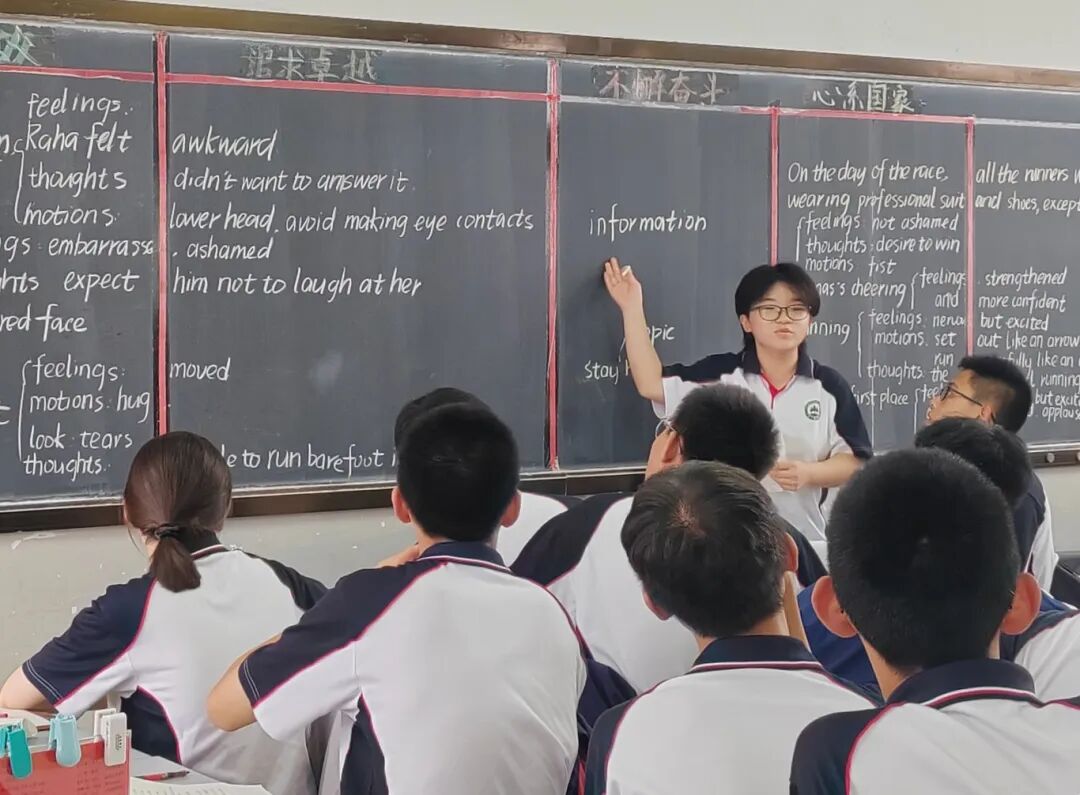 效
追求卓越
不懈奋斗
心系国家
feelings:
Raha felt
thoughts
motions:
embarrasse
expect
red face
feelings:
motions: hug
look: tears
thoughts:
awkward
didn't want to answer it.
lower head, avoid making eye contacts
, ashamed
him not to laugh at her
moved
to run barefoot
information
stay
On the day of the race,
wearing professional suit
feelings: not ashamed
thoughts: desire to win
motions: fist
cheering
feelings:
and
feelings: nervou
motions: set
run
thoughts: the
first place
all the runners
and shoes, except
strengthened
more confident
but excited
out like an arrow
like an
running
but excit
applaus